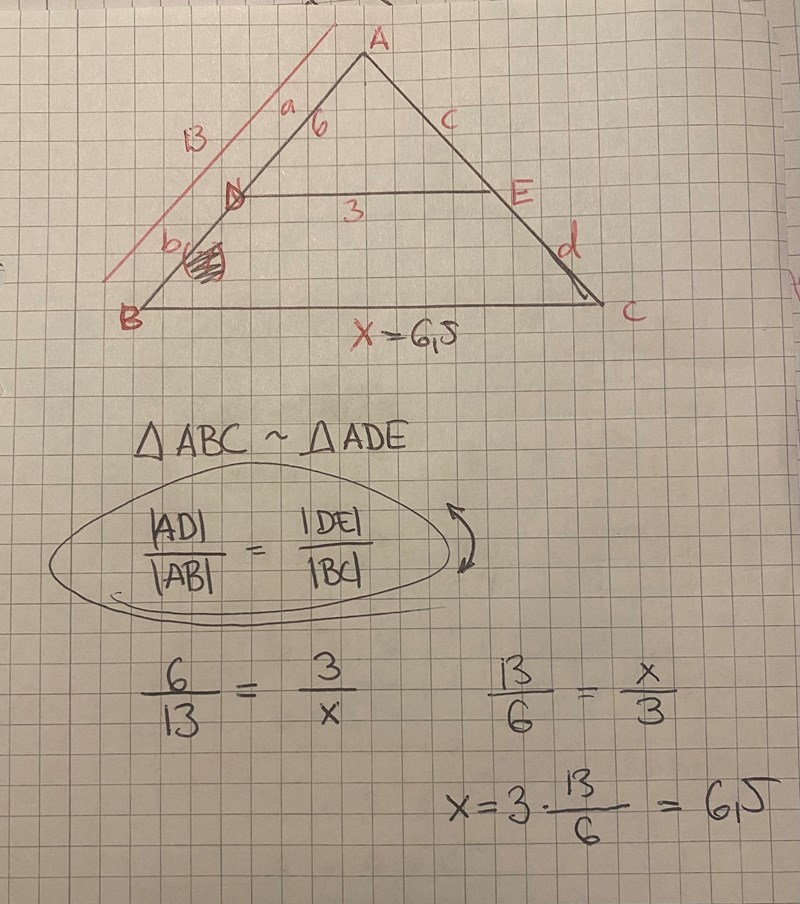 A
13
a
6
C
D
3
E
b
d
B
x = 6,5
C
Δ ABC ~ Δ ADE
|AD| / |AB| = |DE| / |BC|
6 / 13 = 3 / x
13 / 6 = x / 3
x = 3 · 13 / 6 = 6,5